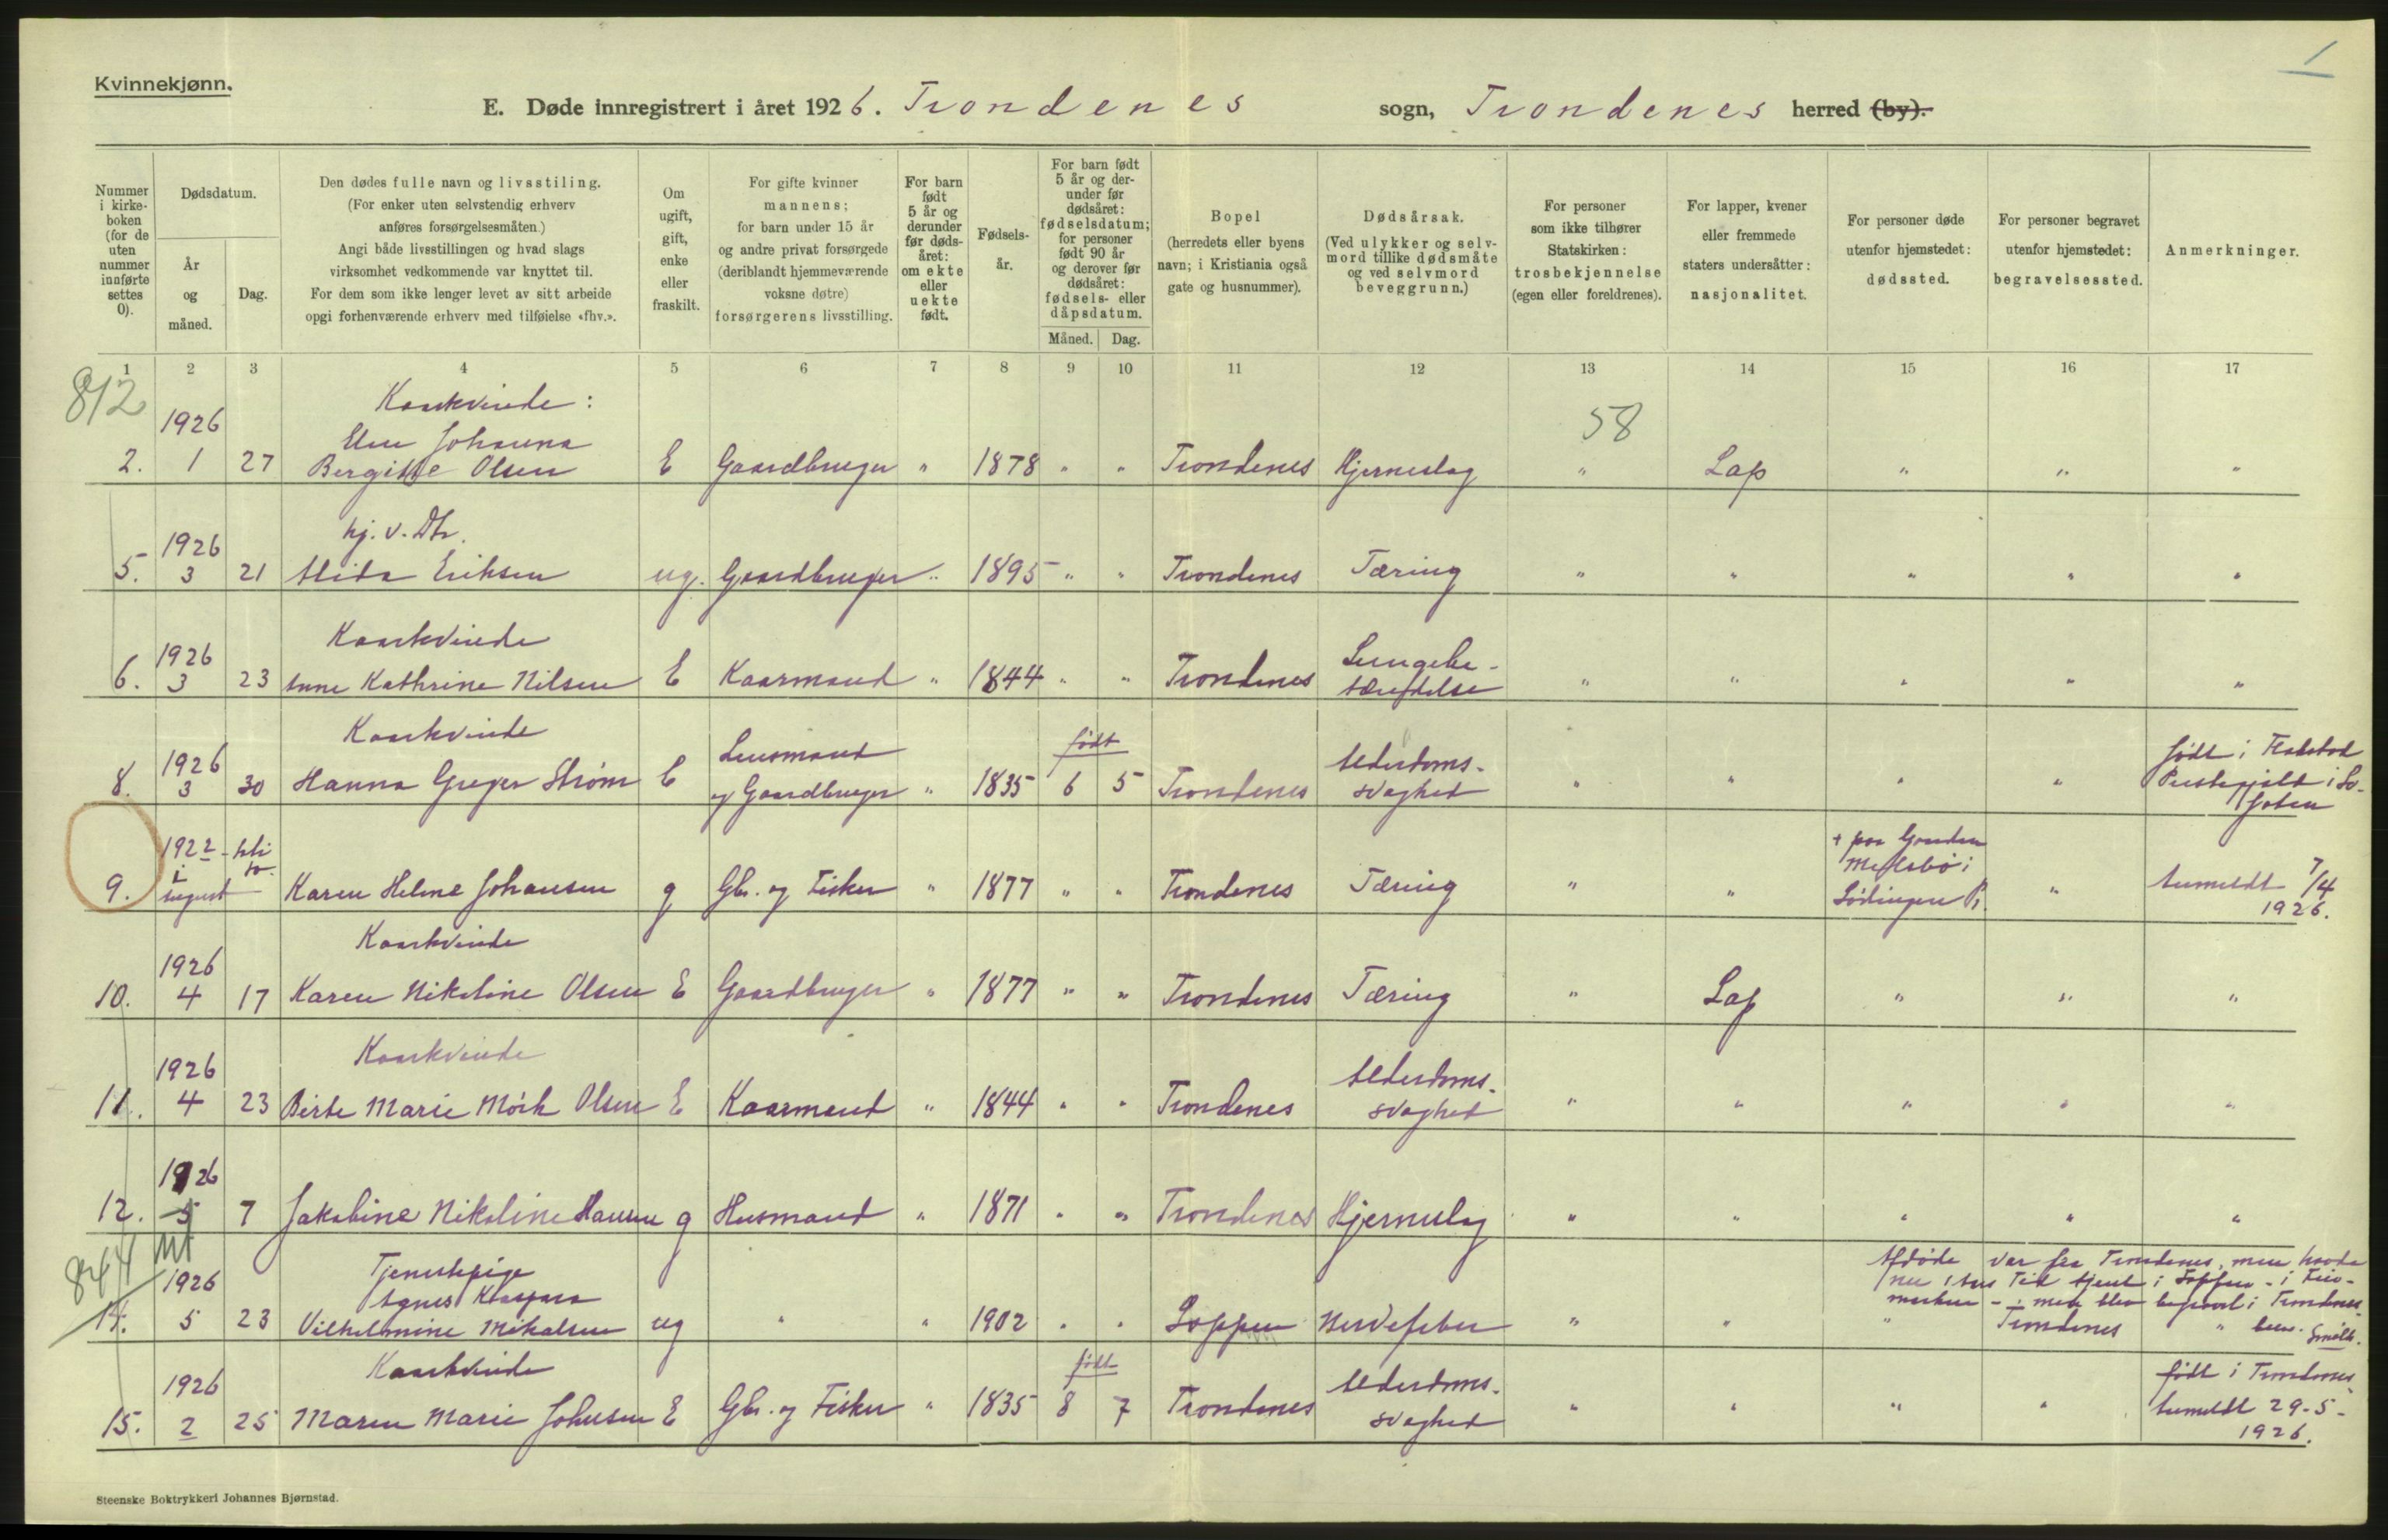 1
Kvinnekjønn.
E. Døde innregistrert i året 1926. Trondenes sogn, Trondenes herred (by).
Nummer
i kirke-
boken
(for de
uten
nummer
innførte
settes
0).
Dødsdatum.
År
og
måned.
Dag.
Den dødes fulle navn og livsstiling.
(For enker uten selvstendig erhverv
anføres forsørgelsesmåten.)
Angi både livsstillingen og hvad slags
virksomhet vedkommende var knyttet til.
For dem som ikke lenger levet av sitt arbeide
opgi forhenværende erhverv med tilføielse «fhv.».
Om
ugift,
gift,
enke
eller
fraskilt.
For gifte kvinner
mannens;
for barn under 15 år
og andre privat forsørgede
(deriblandt hjemmeværende
voksne døtre)
forsørgerens livsstilling.
For barn
født
5 år og
derunder
før døds-
året:
om ekte
eller
uekte
født.
Fødsels-
år.
For barn født
5 år og der-
under før
dødsåret:
fødselsdatum;
for personer
født 90 år
og derover før
dødsåret:
fødsels- eller
dåpsdatum.
Måned. Dag.
Bopel
(herredets eller byens
navn; i Kristiania også
gate og husnummer).
Dødsårsak.
(Ved ulykker og selv-
mord tillike dødsmåte
og ved selvmord
beveggrunn.)
For personer
som ikke tilhører
Statskirken:
trosbekjennelse
(egen eller foreldrenes).
For lapper, kvener
eller fremmede
staters undersåtter:
nasjonalitet.
For personer døde
utenfor hjemstedet:
dødssted.
For personer begravet
utenfor hjemstedet:
begravelsessted.
Anmerkninger.
1 2 3 4 5 6 7 8 9 10 11 12 13 14 15 16 17
812
Kaarkvinde:
1926 Elen Johanna 58
2. 1 27 Bergitte Olsen E Gaardbruger " 1878 " " Trondenes Hjerneslag " Lap " " "
hj. v. Dtr.
1926
5. 3 21 Alida Eriksen ug. Gaardbruger " 1895 " " Trondenes Tæring " " " " "
Kaarkvinde
1926 Lungebe-
6. 3 23 Anne Kathrine Nilsen E Kaarmand " 1844 " " Trondenes tændelse " " " " "
Kaarkvinde
1926 Lensmand født Alderdoms- født i Flakstad
8. 3 30 Hanna Greger Strøm E og Gaardbruger " 1835 6 5 Trondenes svaghed " " " " Prestegjæld i Lo-
foten
1922
i + paa Gaarden
9. august Karen Helene Johansen g Gbr. og Fisker " 1877 " " Trondenes Tæring " " Lødingen P. " Anmeldt 7/4
1926.
Kaarkvinde
1926
10. 4 17 Karen Nikoline Olsen E Gaardbruger " 1877 " " Trondenes Tæring " Lap " " "
Kaarkvinde
1926 Alderdoms-
11. 4 23 Birte Marie Mörk Olsen E Kaarmand " 1844 " " Trondenes svaghed " " " " "
1926
12. 5 7 Jakobine Nikoline Hansen g Husmand " 1871 " " Trondenes Hjerneslag " " " " "
844
Tjenestepige Afdøde var fra Trondenes, men havde
1926 Agnes Kaspara
14. 5 23 Vilhelmine Mikalsen ug " " 1902 " " Loppen Nervefeber " " " Trondenes "
Kaarkvinde
1926 født Alderdoms- født i Trondenes
15. 2 25 Maren Marie Johnsen E Gbr. og Fisker " 1835 8 7 Trondenes svaghed " " " " Anmeldt 29-5-
1926.
Steenske Boktrykkeri Johannes Bjørnstad.